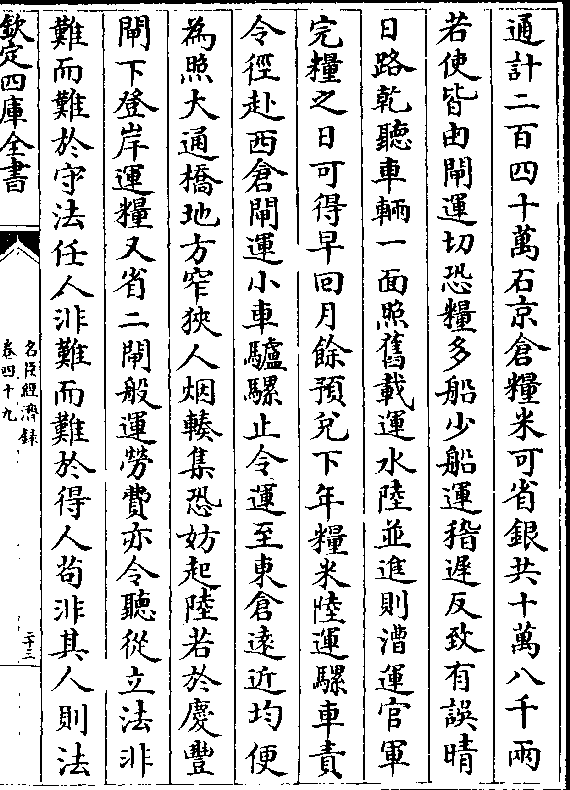 通計二百四十萬石京倉糧米可省銀共十萬八千兩
若使皆由閘運切恐糧多船少船運稽遲反致有誤晴
日路乾聽車輛一面照舊載運水陸並進則漕運官軍
完糧之日可得早回月餘預兌下年糧米陸運騾車責
令徑赴西倉閘運小車驢騾止令運至東倉遠近均便
為照大通橋地方窄狹人烟輳集恐妨起陸若於慶豐
閘下登岸運糧又省二閘般運勞費亦令聽從立法非
難而難於守法任人非難而難於得人茍非其人則法
欽定四庫全書
名臣經濟錄
卷四十九
二十三